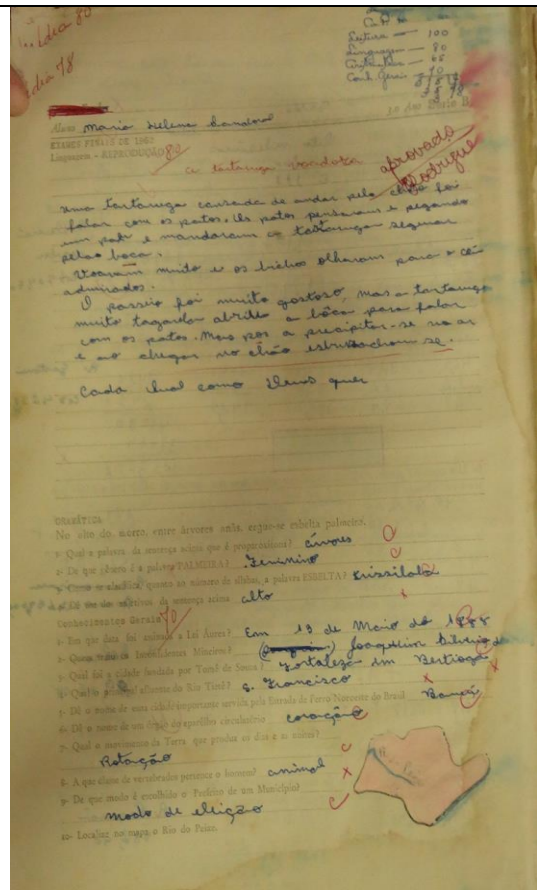 média 80
média 78
Leitura — 100
Linguagem — 80
Conh. Gerais
Aluno Maria Helena
EXAMES FINAIS DE 1960
Linguagem - REPRODUÇÃO 80
a tartaruga voadora
aprovada
Uma tartaruga cansada de andar pelo chão foi
falar com os patos. Os patos pensaram e pegando
um pau e mandaram a tartaruga segurar
pelas boca.
Voaram muito e os bichos olharam para o céu
admirados.
O passeio foi muito gostoso, mas a tartaruga
muito tagarela abriu a bôca para falar
com os patos. Mas pos a precipitar-se no ar
e ao chegar no chão esborrachou se.
Cada qual como Deus quer
GRAMÁTICA
No alto do morro, entre árvores anãs, ergue-se esbelta palmeira.
1- Qual a palavra da sentença acima que é proparoxítona? árvores
2- De que gênero é a palavra PALMEIRA? Feminino
3- Como se classifica, quanto ao número de sílabas, a palavra ESBELTA? trissílaba
4- Dê um dos adjetivos da sentença acima alto
Conhecimentos Gerais 70
1- Em que data foi assinada a Lei Áurea? Em 13 de Maio de 1888
2- Quem traiu os Inconfidentes Mineiros? Joaquim Silvério
3- Qual foi a cidade fundada por Tomé de Souza? Fortaleza em Bertioga
4- Qual o principal afluente do Rio Tietê? S. Francisco
5- Dê o nome de uma cidade importante servida pela Estrada de Ferro Noroeste do Brasil Bauru
6- Dê o nome de um órgão do aparelho circulatório coração
7- Qual o movimento da Terra que produz os dias e as noites?
Rotação
8- A que classe de vertebrados pertence o homem? animal
9- De que modo é escolhido o Prefeito de um Município?
modo de eleição
10- Localize no mapa o Rio do Peixe.